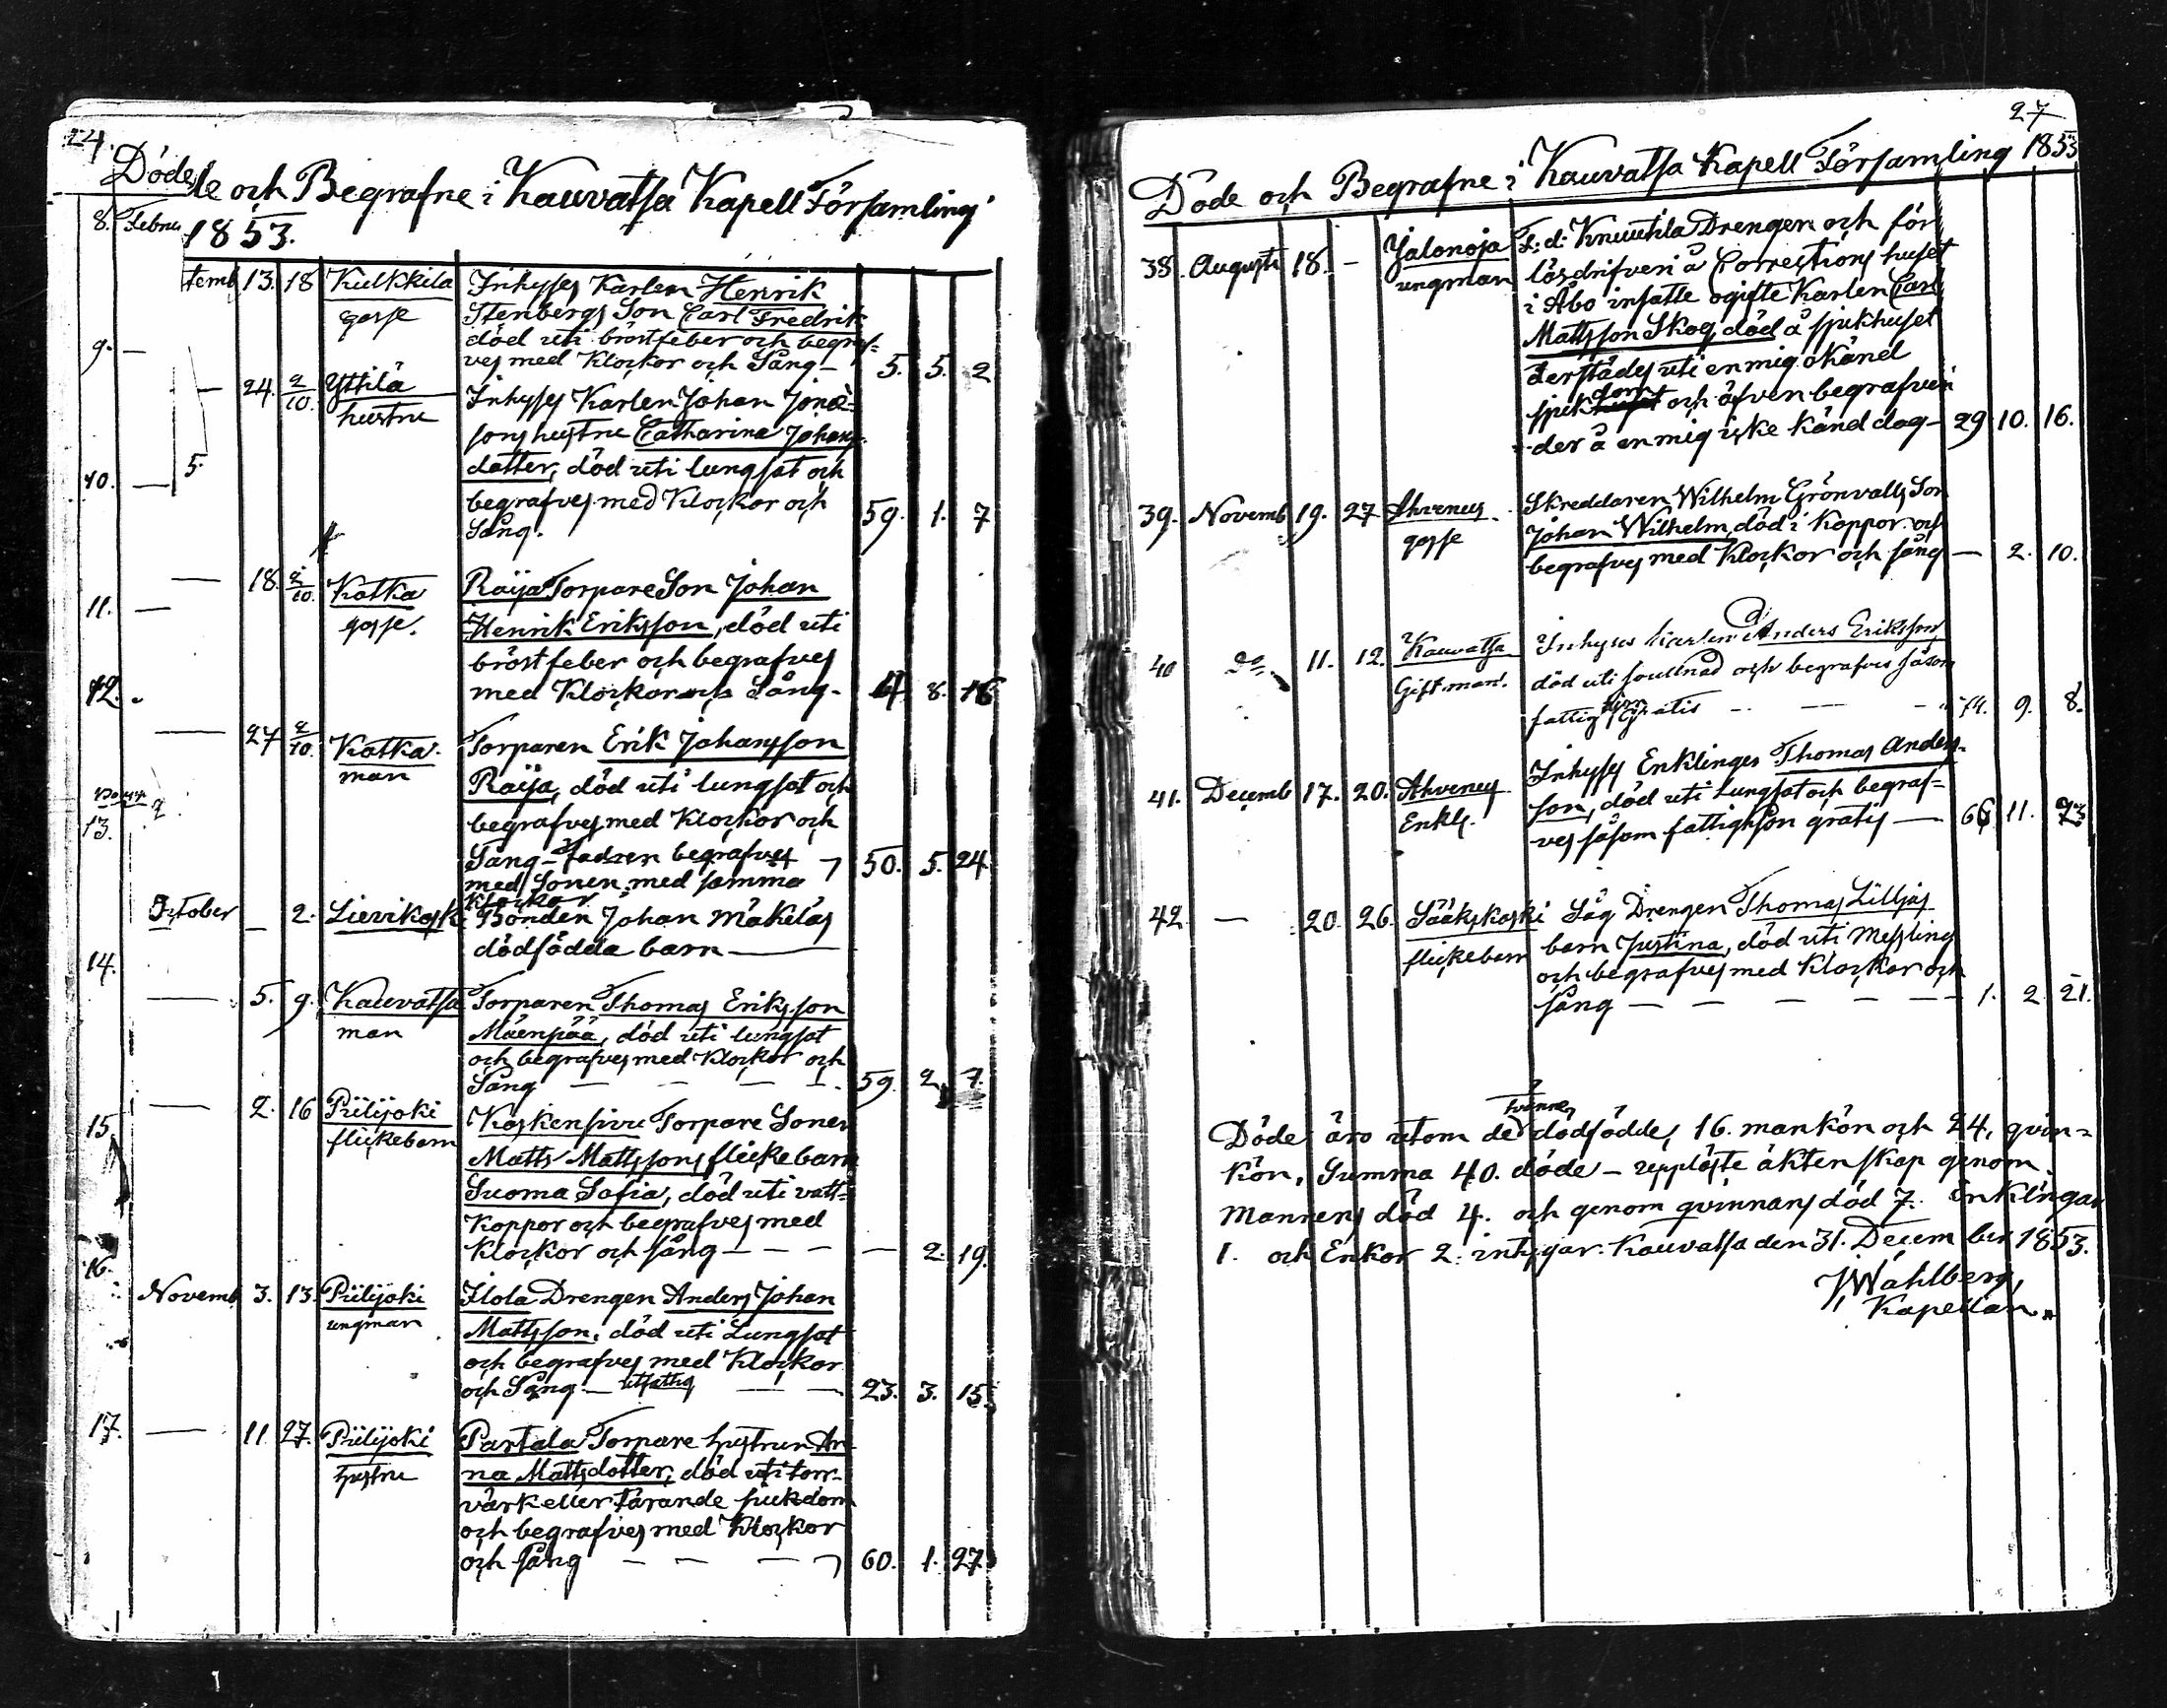 24.
Döde
de och Begrafne i Kauvatsa Kapell Församling
8. Febru
1853.
temb 13. 18 Kulkkila Inhyses Karlen Henrik
gosse Stenbergs Son Carl Fredrik
död uti bröstfeber och begraf-
ves med Klockor och Sång - 5. 5. 2
9. —
— 24. 2/10. Yttilä Inhyses Karlen Johan Jona-
hustru sons hustru Catharina Johans-
10. — 5. dotter, död uti lungsot och
begrafves med Klockor och
Sång. 59. 1. 7
— 18. 2/10. Katka Raija Torpare Son Johan
11. — gosse. Henrik Eriksson, död uti
bröstfeber och begrafves
12. med Klockor och Sång - 4 8. 16
— 27 2/10. Katka. Torparen Erik Johansson
man Raija, död uti lungsot och
13. 2. begrafves med Klockor och
Sång - fadren begrafves 50. 5. 24.
med Sonen med samma
Klockor
October — 2. Lievikoski Bonden Johan Mäkeläs
dödfödda barn —
14.
— 5. 9. Kauvatsa Torparen Thomas Eriksson
man Mäenpää, död uti lungsot
och begrafves med Klockor och
Sång — — — 59. 2. 7.
— 2. 16 Piilijoki Koskensivu Torpare Sonen
15. flickebarn Matts Mattssons flickebarn
Suoma Sofia, död uti vatt-
koppor och begrafves med
Klockor och sång - - - — 2. 19.
16.
Novemb 3. 13. Piilijoki Ilola Drengen Anders Johan
ungman Mattsson, död uti Lungsot
och begrafves med Klockor
och Sång — utfattig — — 23. 3. 15
17. — 11. 27. Piilijoki Partala Torpare hustrun An-
hustru na Mattsdotter, död uti torr-
värk eller tärande sjukdom
och begrafves med Klockor
och sång — — — 60. 1. 27
27
Döde och Begrafne i Kauvatsa Kapell Församling 1853
38. Augusti 18. - Jalonoja F: d: Knuutila Drengen och för
ungman lösdrifveri å Corrections huset
i Åbo insatte ogifte Karlen Carl
Mattsson Skog, död å sjukhuset
derstädes uti en mig okänd
dom
sjukhuset och äfven begrafven
der å en mig icke känd dag - 29. 10. 16.
39. Novemb 19. 27 Ahvenus Skreddaren Wilhelm Grönvalls Son
gosse Johan Wilhelm, död i Koppor och
begrafves med Klockor och sång — 2. 10.
40 do. 11. 12. Kauvatsa Inhyses karlen Anders Eriksson
Gift man. död uti svullnad och begrafves såsom
fattighjon gratis - — - 9. 8.
41. Decemb 17. 20. Ahvenus Inhyses Enklingen Thomas Anders-
Enkl. son, död uti Lungsot och begraf-
ves såsom fattighjon gratis — 66 11. 23
42. — 20. 26. Sääkskoski Såg Drengen Thomas Liljas
flickebarn barn Justina, död uti Messling
och begrafves med Klockor och
sång — — — — — 1. 2 21.
tvänne
Döde äro utom de dödfödde, 16. mankön och 24. qvin-
kön, Summa 40. döde - upplöste äktenskap genom
Mannens död 4. och genom qvinnans död 7. Enklingar
1. och Enkor 2. intygar. Kauvatsa den 31. December 1853.
J. Wahlberg,
Kapellan.